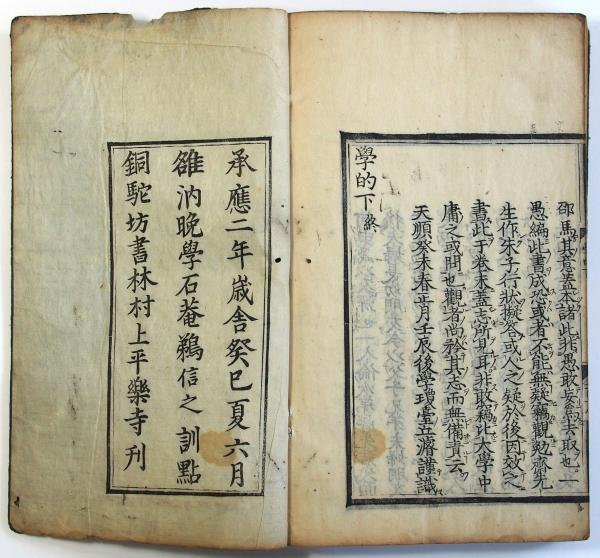 邵馬其意蓋本諸此非愚敢妄去取也一
愚編此書成恐或者不能無疑竊觀勉齋先
生作朱子行狀擬答或人之疑於後因效之
書此于卷末蓋志所見耳非敢竊比大學中
庸之或問也觀者尚矜其志而無備責云
天順癸未春正月壬辰後學瓊臺丘濬謹識
學的下終
承應二年歲舎癸巳夏六月
雒汭晩學石菴鵜信之訓點
銅駝坊書林村上平樂寺刊